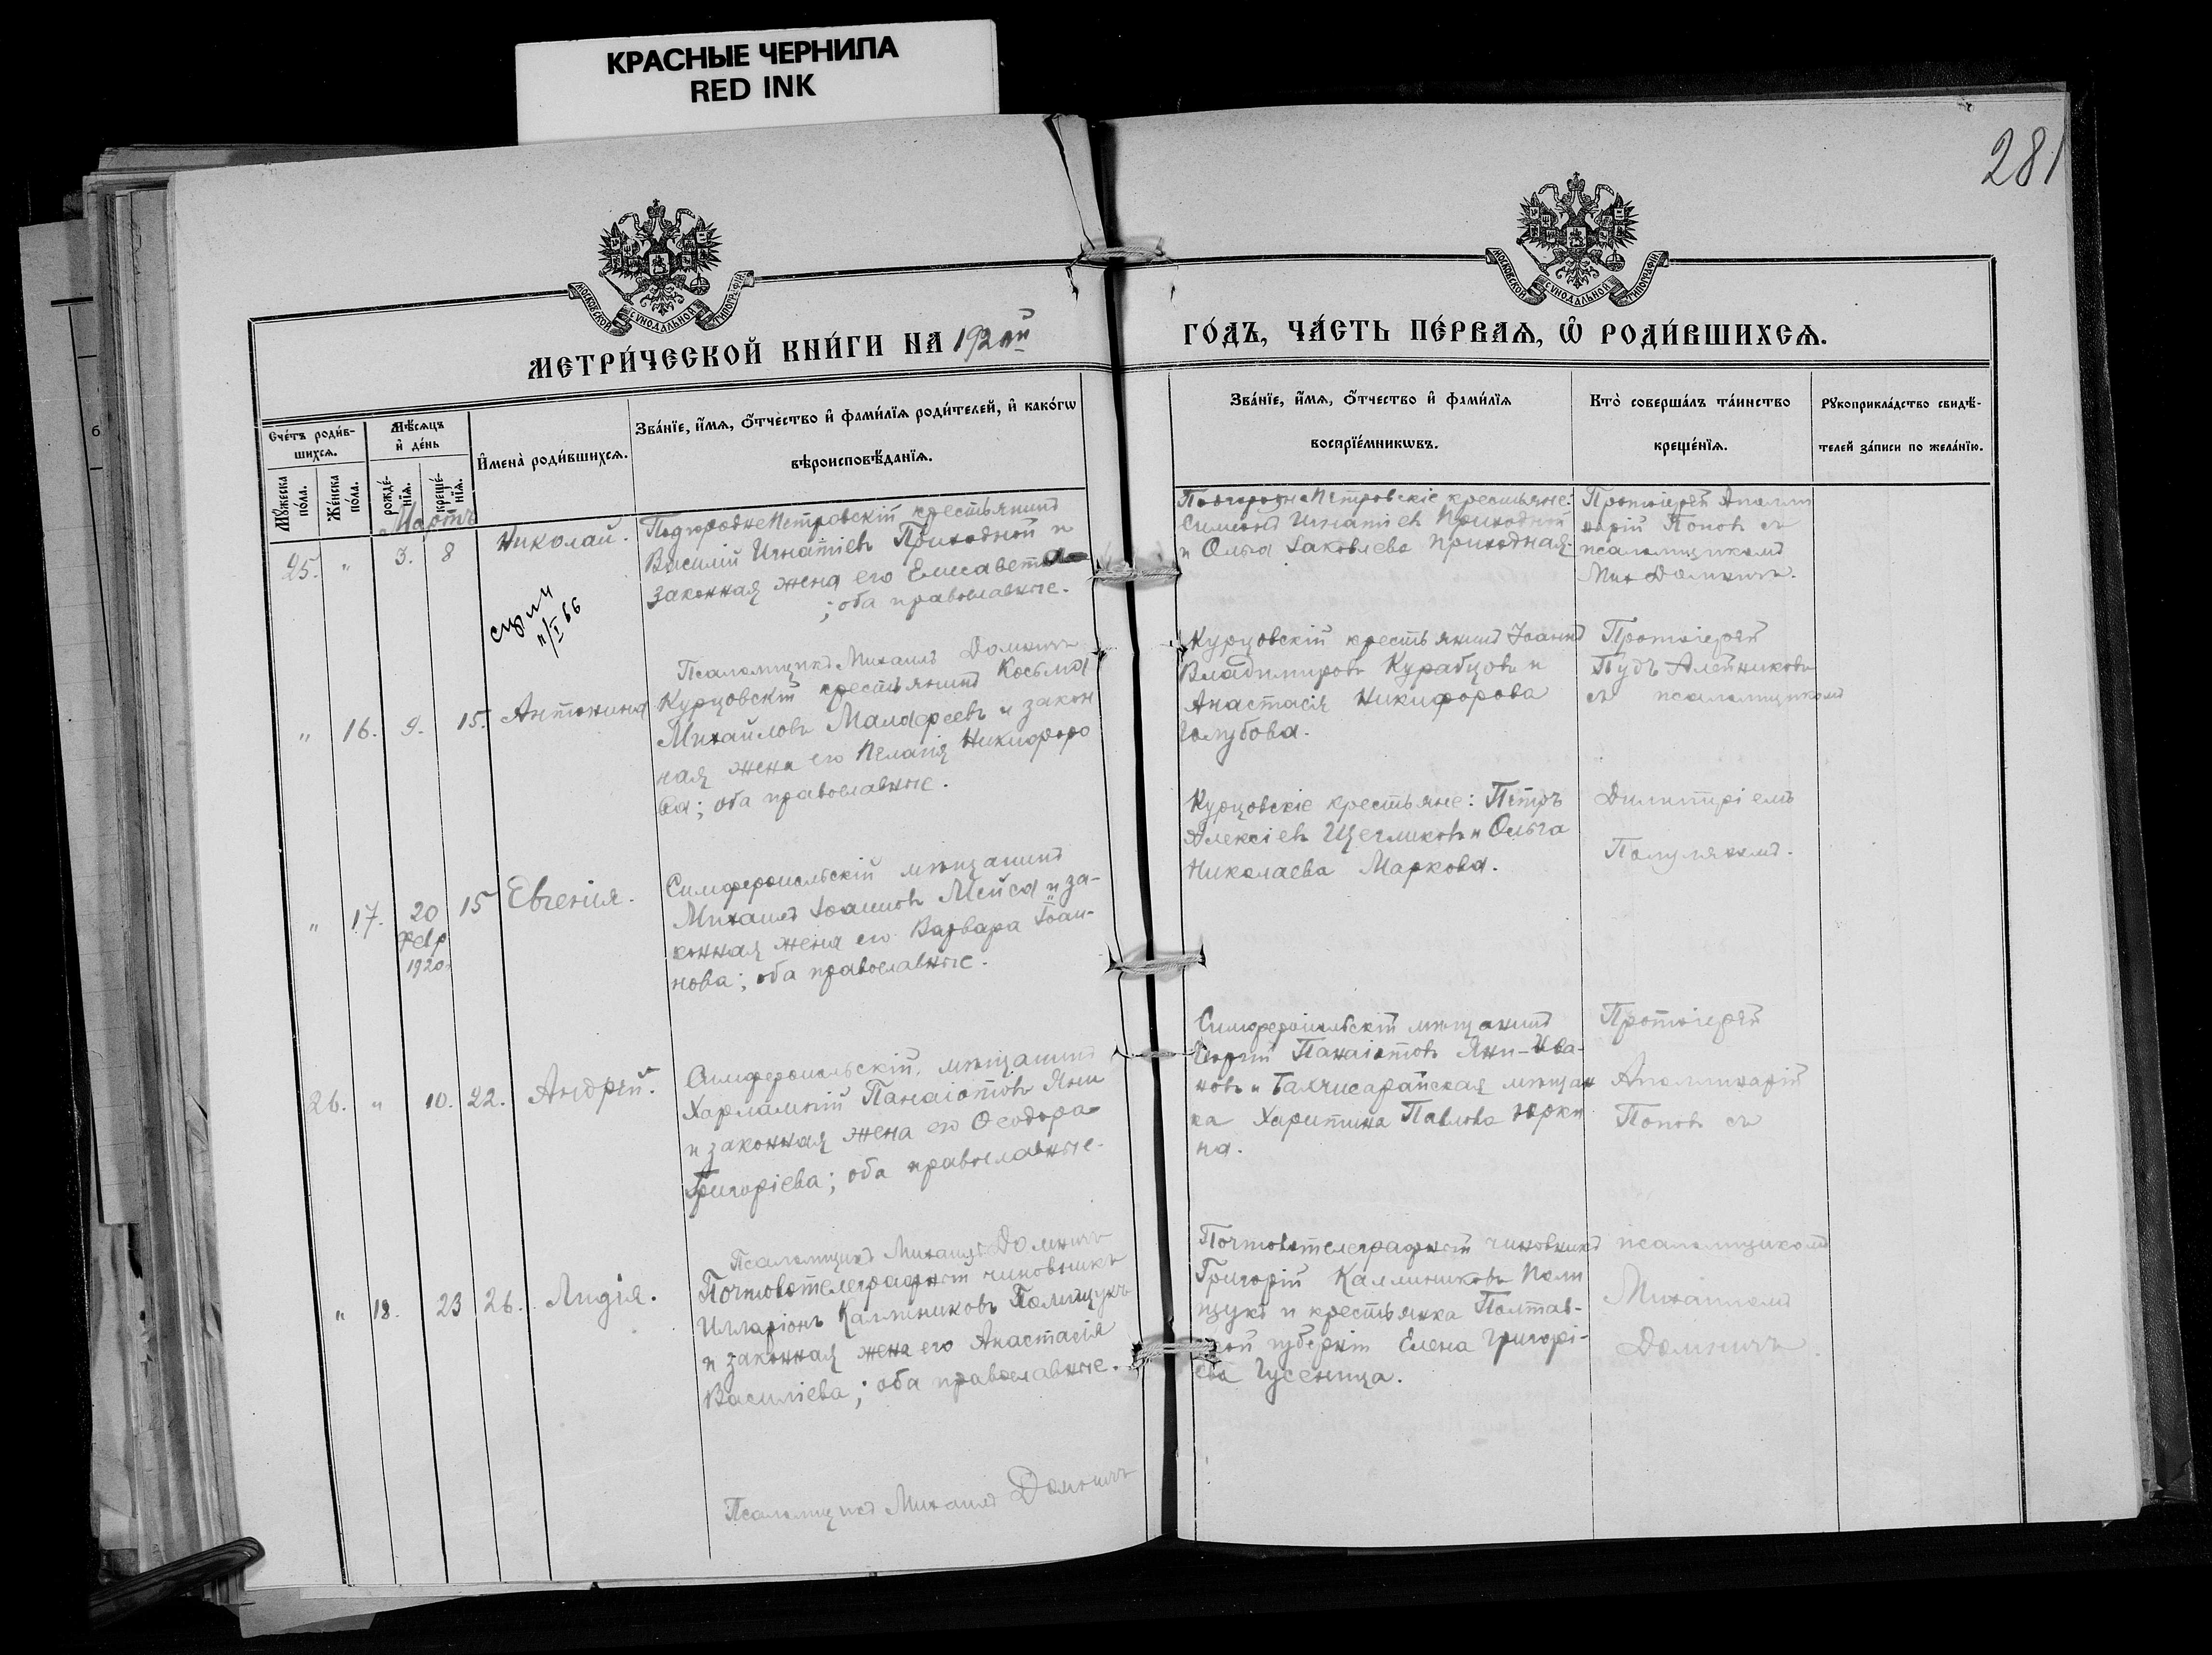 КРАСНЫЕ ЧЕРНИЛА
RED INK
281
МОСКОВСКОЙ СУНОДАЛЬНОЙ ТИПОГРАФІИ
МОСКОВСКОЙ СУНОДАЛЬНОЙ ТИПОГРАФІИ
МЕТРИ́ЧЕСКОЙ КНИ́ГИ НА 192
ГО́ДЪ, ЧА́СТЬ ПЕ́РВАѦ, Ѡ҆ РОДИ́ВШИХСѦ.
Сче́тъ роди́в-
шихсѧ.
Мꙋ́жеска по́ла.
Же́нска по́ла.
Мѣ́сѧцъ
и҆ де́нь
рожде́-
нїѧ.
креще́-
нїѧ.
И҆мена̀ роди́вшихсѧ.
Зва́нїе, и҆́мѧ, ѻ҆́тчество и҆ фами́лїѧ роди́телей, и҆ како́гѡ
вѣроисповѣ́данїѧ.
Зва́нїе, и҆́мѧ, ѻ҆́тчество и҆ фами́лїѧ
воспрїе́мникѡвъ.
Кто̀ соверша́лъ та́инство
креще́нїѧ.
Рꙋкоприкла́дство свидѣ́-
телей за́писи по жела́нїю.
Мартъ
25. " 3. 8 Николай.
ПодгороднеПетровскій крестьянинъ
Василій Игнатіевъ Приходной и
законная жена его Елисавета
; оба православные.
Псаломщикъ Михаилъ Домничъ
ПодгороднеПетровскіе крестьяне:
Симеонъ Игнатіевъ Приходной
и Ольга Іаковлева Приходная.
Протоіерей Аполли
нарій Поповъ съ
псаломщикомъ
Мих Домничъ.
" 16. 9. 15. Антонина
Курцовскій крестьянинъ Косьма
Михайловъ Малафеевъ и закон
ная жена его Пелагія Никифоро
ва; оба православные.
Курцовскій крестьянинъ Іоаннъ
Владимировъ Курабцовъ и
Анастасія Никифорова
Голубова.
Протоіерей
Пудъ Алейниковъ
съ псаломщикомъ
" 17. 20 февр 1920. 15 Евгенія.
Симферопольскій мѣщанинъ
Михаилъ Іоанновъ Мейса и за-
конная жена его Варвара Іоан-
нова; оба православные.
Курцовскіе крестьяне: Петръ
Алексіевъ Щегликовъ и Ольга
Николаева Маркова.
Димитріемъ
26. " 10. 22. Андрей.
Симферопольскій мѣщанинъ
Харлампій Панаіотовъ Яни
и законная жена его Ѳеодора
Григоріева; оба православные.
Псаломщикъ Михаилъ Домничъ
Симферопольскій мѣщанинъ
Георгій Панаіотовъ Яни-Ива-
новъ и Бахчисарайская мѣщан
ка Харитина Павлова Юрки
на.
Протоіерей
Аполлинарій
Поповъ съ
" 18. 23 26. Лидія.
Почтовотелеграфный чиновникъ
Илларіонъ Каллиниковъ Полищукъ
и законная жена его Анастасія
Василіева; оба православные.
Псаломщикъ Михаилъ Домничъ
Почтовотелеграфный чиновникъ
Григорій Каллиниковъ Поли
щукъ и крестьянка Полтав-
ской губерніи Елена Григорі-
ева Гусеница.
псаломщикомъ
Михаиломъ
Домничъ.